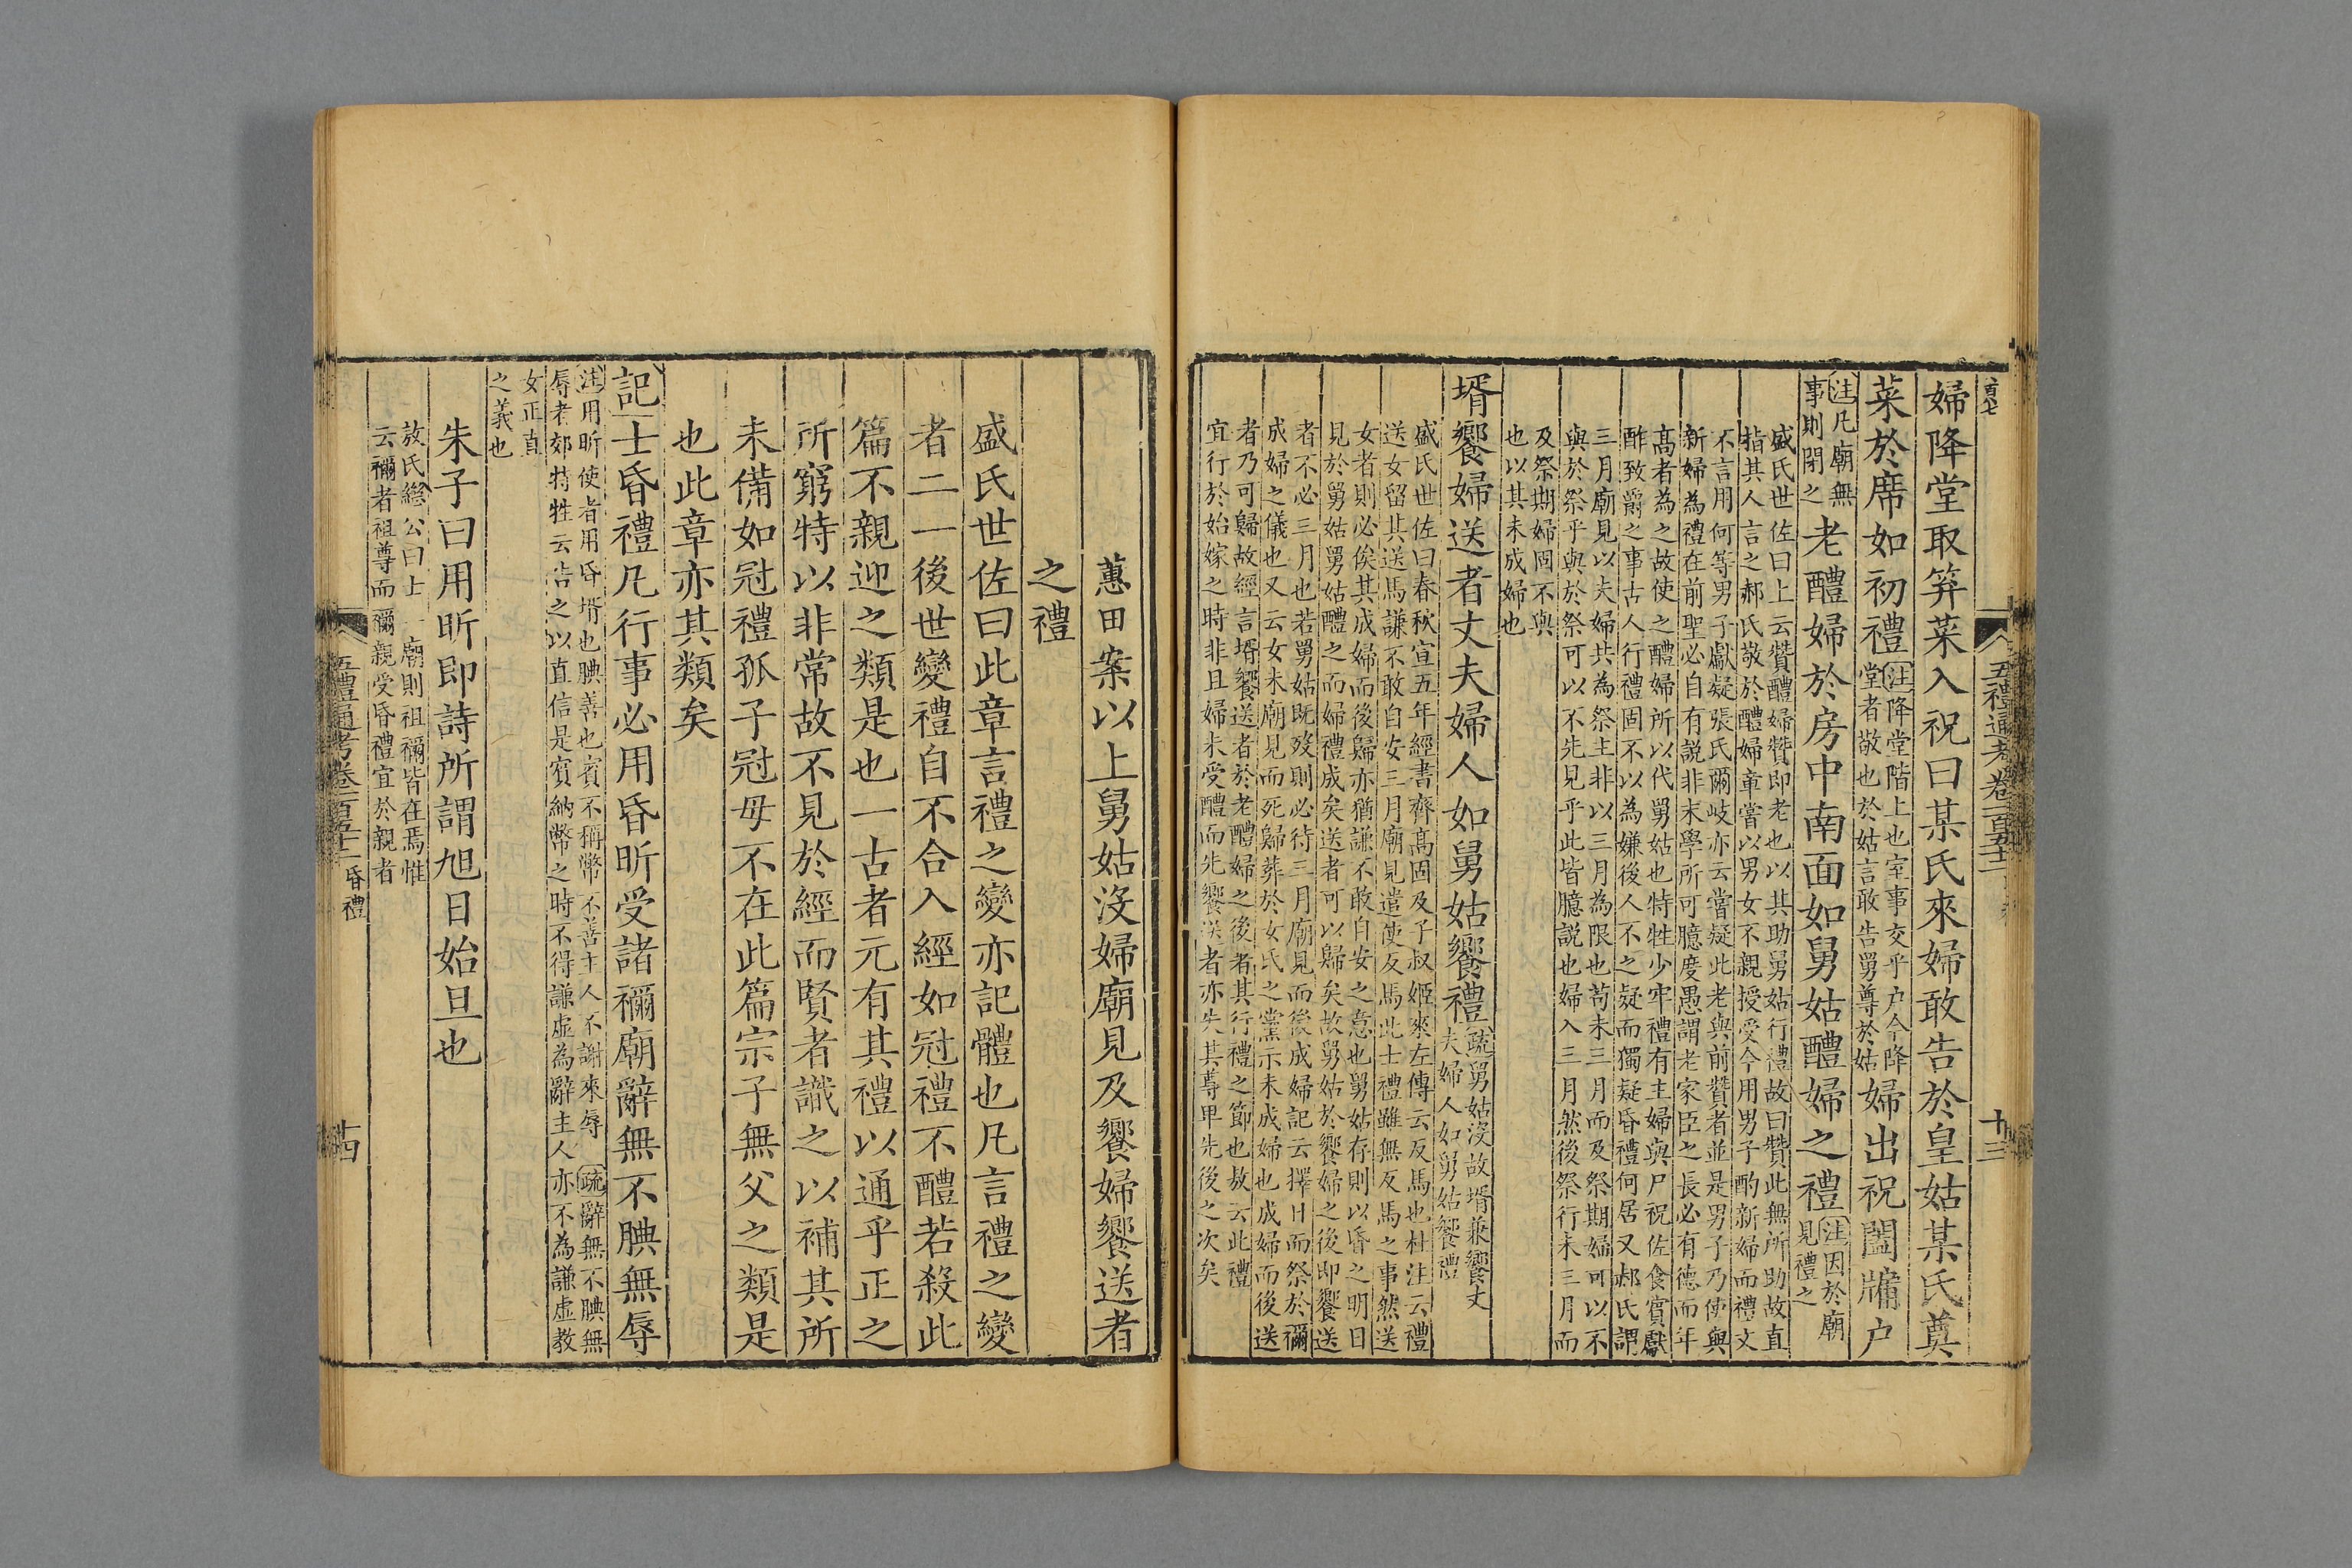 五禮通考卷一百五十一
十三
婦降堂取笲菜入祝曰某氏來婦敢告於皇姑某氏奠
菜於席如初禮注降堂階上也室事交乎户今降
堂者敬也於姑言敢告舅尊於姑婦出祝闔牖户
注凡廟無
事則閉之老醴婦於房中南面如舅姑醴婦之禮注因於廟
見禮之
盛氏世佐曰上云贊醴婦贊即老也以其助舅姑行禮故曰贊此無所助故直
指其人言之郝氏敬於醴婦章當以男女不親授受今用男子酌新婦而禮文
不言用何等男子獻疑張氏爾岐亦云當疑此老與前贊者並是男子乃使與
新婦為禮在前聖必自有說非末學所可臆度愚謂老家臣之長必有德而年
高者為之故使之醴婦所以代舅姑也特牲少牢禮有主婦與尸祝佐食賓獻
酢致爵之事古人行禮固不以為嫌後人不之疑而獨疑昏禮何居又郝氏謂
三月廟見以夫婦共為祭主非以三月為限也苟未三月而及祭期婦可以不
與於祭乎與於祭可以不先見乎此皆臆説也婦入三月然後祭行未三月而
及祭期婦固不與
也以其未成婦也
壻饗婦送者丈夫婦人如舅姑饗禮疏舅姑沒故壻兼饗丈
夫婦人如舅姑饗禮
盛氏世佐曰春秋宣五年經書齊高固及子叔姬來左傳云反馬也杜注云禮
送女留其送馬謙不敢自安三月廟見遣使反馬此士禮雖無反馬之事然送
女者則必俟其成婦而後歸亦猶謙不敢自安之意也舅姑存則以昏之明日
見於舅姑舅姑醴之而婦禮成矣送者可以歸矣故舅姑於饗婦之後即饗送
者不必三月也若舅姑既歿則必待三月廟見而後成婦記云擇日而祭於禰
成婦之儀也又云女未廟見而死歸葬於女氏之黨示未成婦也成婦而後送
者乃可歸故經言壻饗送者於老醴婦之後者其行禮之節也敖云此禮
宜行於始嫁之時非且婦未受醴而先饗送者亦失其尊卑先後之次矣
蕙田案以上舅姑沒婦廟見及饗婦饗送者
之禮
盛氏世佐曰此章言禮之變亦記體也凡言禮之變
者二一後世變禮自不合入經如冠禮不醴若殺此
篇不親迎之類是也一古者元有其禮以通乎正之
所窮特以非常故不見於經而賢者識之以補其所
未備如冠禮孤子冠母不在此篇宗子無父之類是
也此章亦其類矣
記士昏禮凡行事必用昏昕受諸禰廟辭無不腆無辱
注用昕使者用昏壻也腆善也賓不稱幣不善主人不謝來辱疏辭無不腆無
辱者郊特牲云告之以直信是賓納幣之時不得謙虛為辭主人亦不為謙虛教
女正直
之義也
朱子曰用昕即詩所謂旭日始旦也
敖氏繼公曰士一廟則祖禰皆在焉惟
云禰者祖尊而禰親受昏禮宜於親者
五禮通考卷一百五十一 昏禮
十四